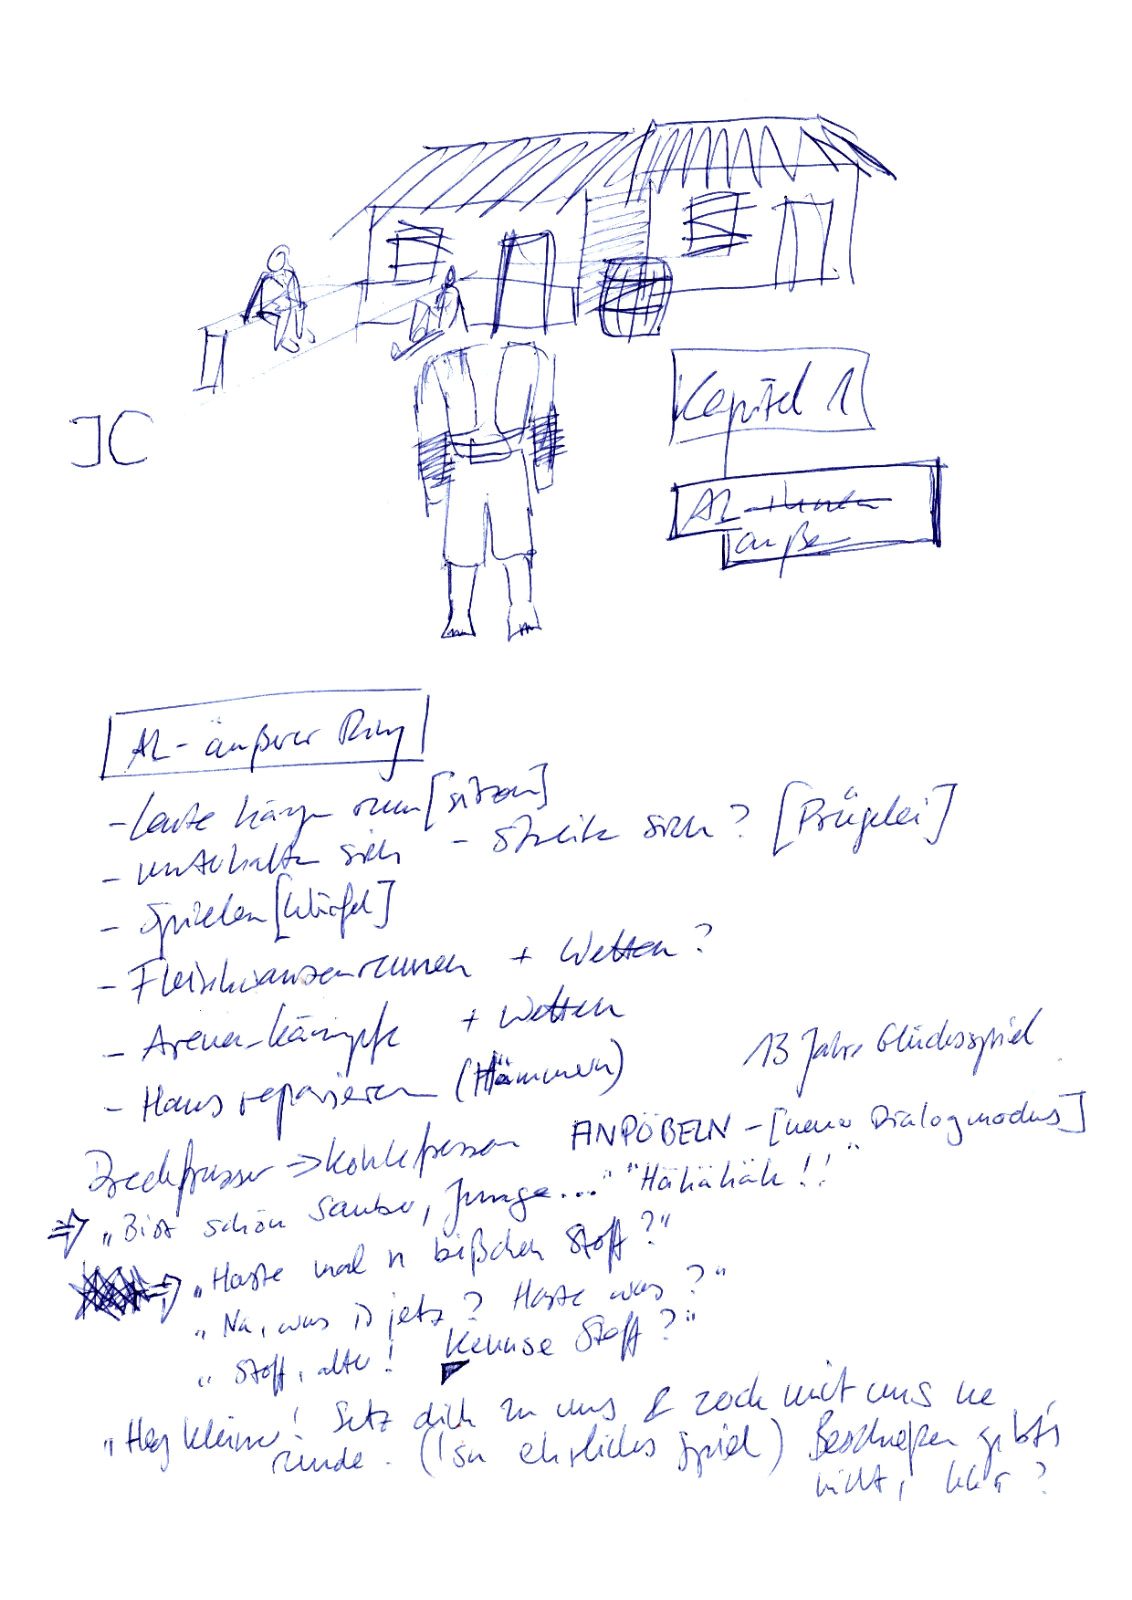 JC
Kapitel 1
AL
außen
AL - äußerer Ring
- Leute hängen rum [sitzen]
- unterhalten sich - Streiten sich? [Prügelei]
- Spielen [Würfel]
- Fleischwanzenrennen + Wetten?
- Arena-kämpfe + Wetten
- Haus reparieren (Hämmern)
13 Jahre Glücksspiel
Dreckfresser => Kohlefresser ANPÖBELN - [neuer Dialogmodus]
=> „Bist schön sauber, Junge..." "Hähähäh!!"
=> „Haste mal n bißchen Stoff?"
„Na, was is jetz? Haste was?"
„Stoff, alter! Kennse Stoff?"
„Hey kleiner! Setz dich zu uns & zock mit uns ne
runde. ('sn ehrliches Spiel) Bescheißen gibt's
nicht, klar?